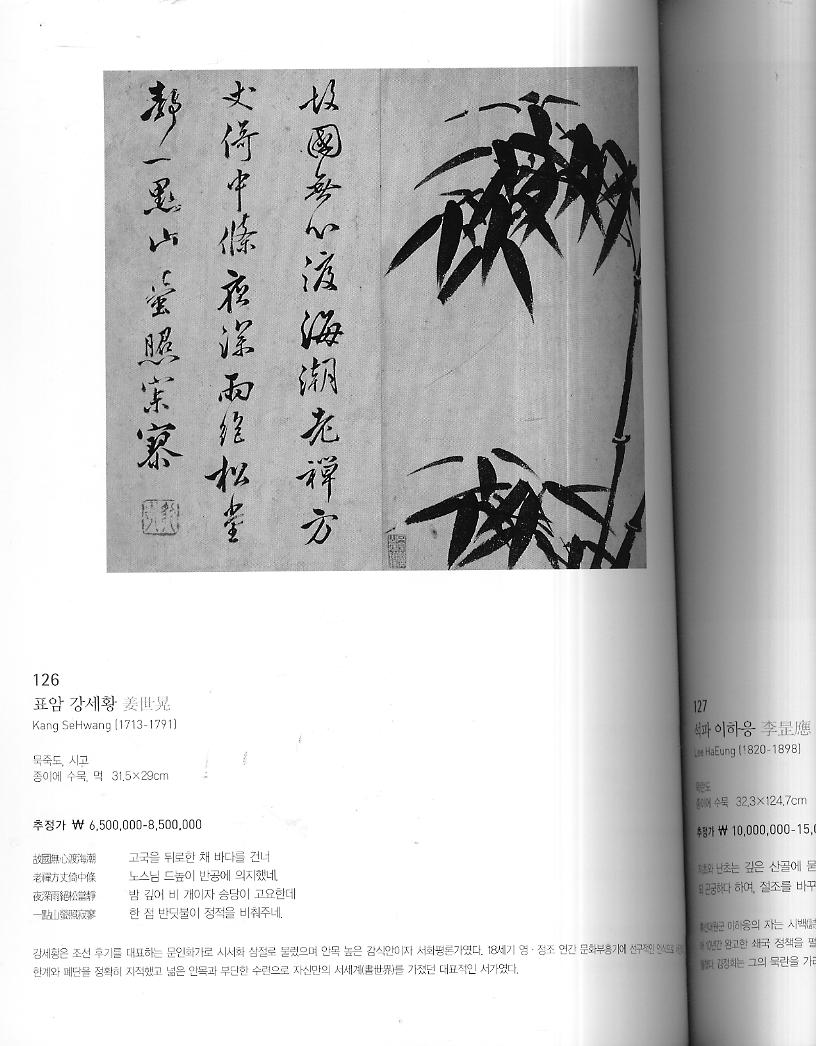 故國無心渡海潮老禪方
丈倚中條夜深雨絶松堂
靜一點山螢照寂寥
126
표암 강세황 姜世晃
Kang SeHwang (1713-1791)
묵죽도, 시고
종이에 수묵, 먹 31.5×29cm
추정가 ₩ 6,500,000-8,500,000
故國無心渡海潮 고국을 뒤로한 채 바다를 건너
老禪方丈倚中條 노스님 드높이 반공에 의지했네.
夜深雨絕松當靜 밤 깊어 비 개이자 승당이 고요한데
一點山螢照寂寥 한 점 반딧불이 정적을 비춰주네.
강세황은 조선 후기를 대표하는 문인화가로 시서화 삼절로 불렸으며 안목 높은 감식안이자 서화평론가였다. 18세기 영·정조 연간 문화부흥기에 선구적인 인식으로
한계와 폐단을 정확히 지적했고 넓은 안목과 부단한 수련으로 자신만의 서세계(書世界)를 가졌던 대표적인 서가였다.
127
석파 이하응 李昰應
Lee HaEung (1820-1898)
묵란도
종이에 수묵 32.3×124.7cm
추정가 ₩ 10,000,000-15,0
난초는 깊은 산골에 묻
곤궁하다 하여, 절조를 바꾸
흥선대원군 이하응의 자는 시백
10년간 완고한 쇄국 정책을 펼
김정희는 그의 묵란을 가리